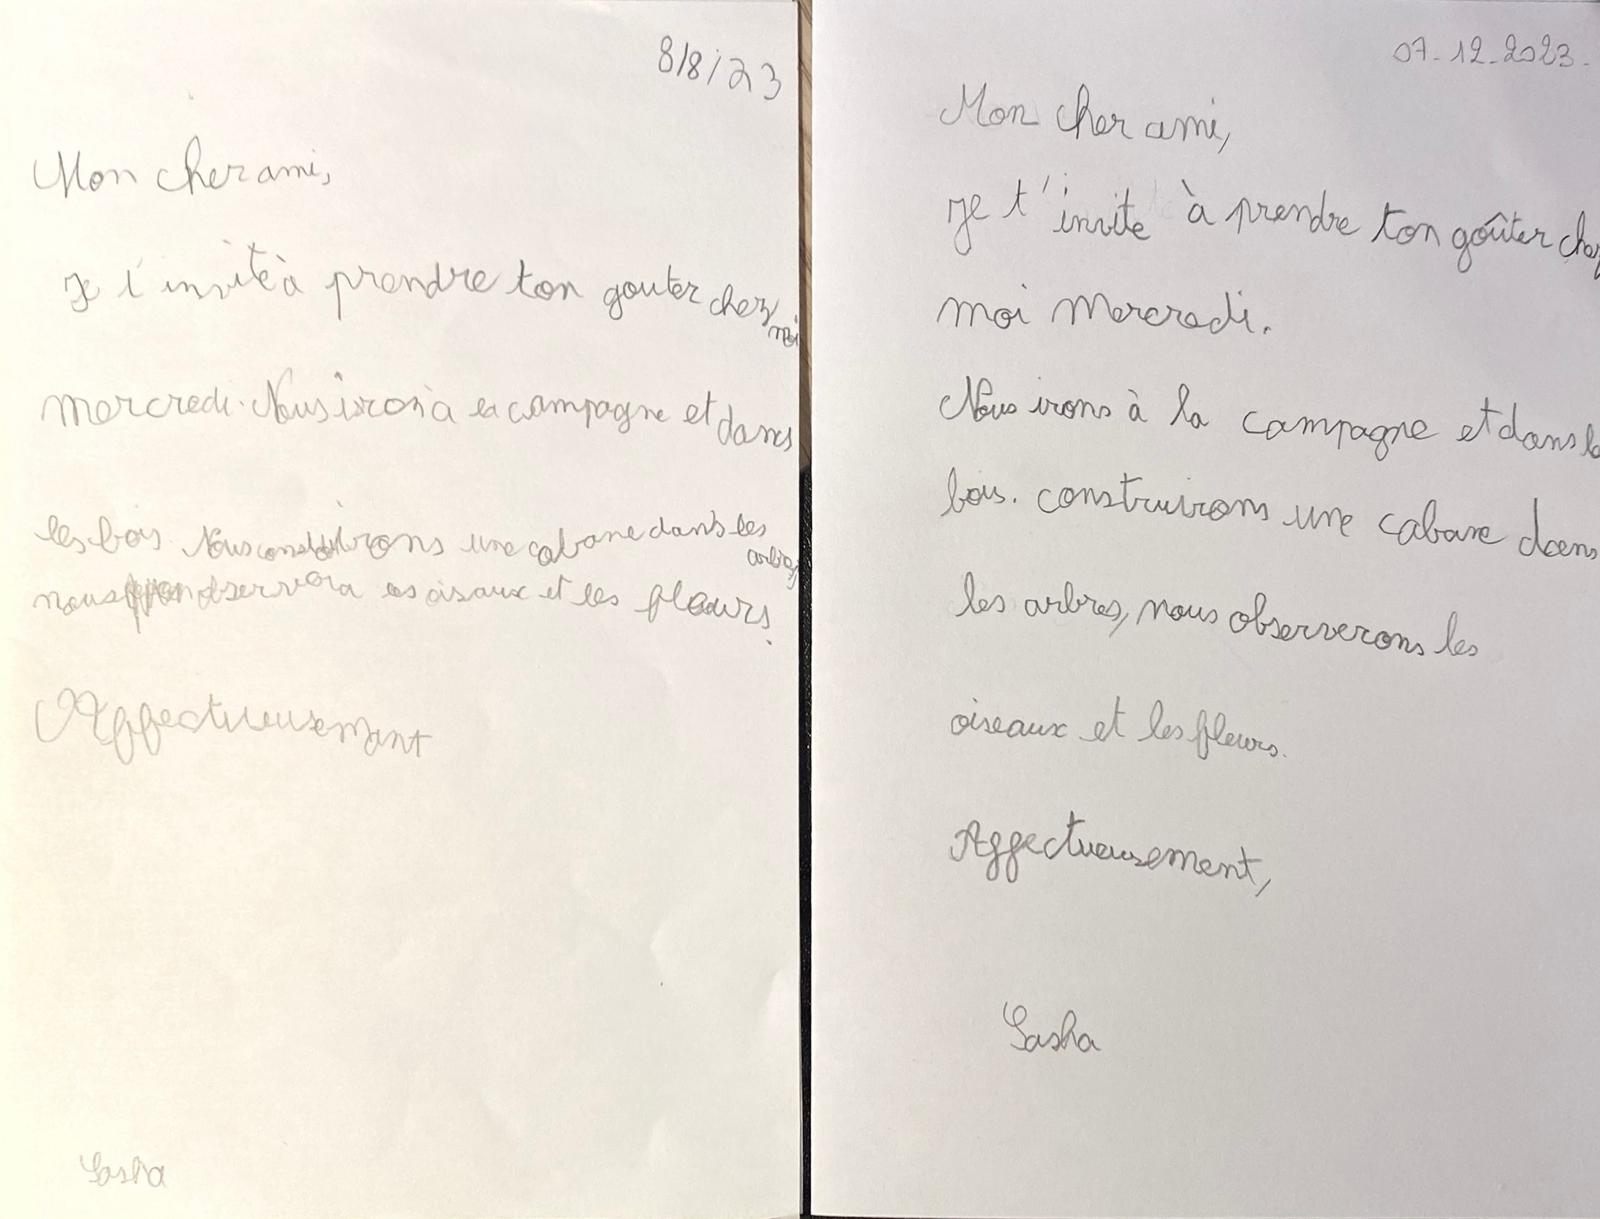 8/8/23
Mon cher ami,
Je t'invite à prendre ton gouter chez moi
mercredi. Nous irons à la campagne et dans
les bois. Nous construirons une cabane dans les arbres,
nous observera les oisaux et les fleurs.
Affectueusement
Sasha
07-12-2023.
Mon cher ami,
Je t'invite à prendre ton goûter chez
moi Mercredi.
Nous irons à la campagne et dans
bois. construirons une cabane dans
les arbres, nous observerons les
oiseaux et les fleurs.
Affectueusement,
Sasha